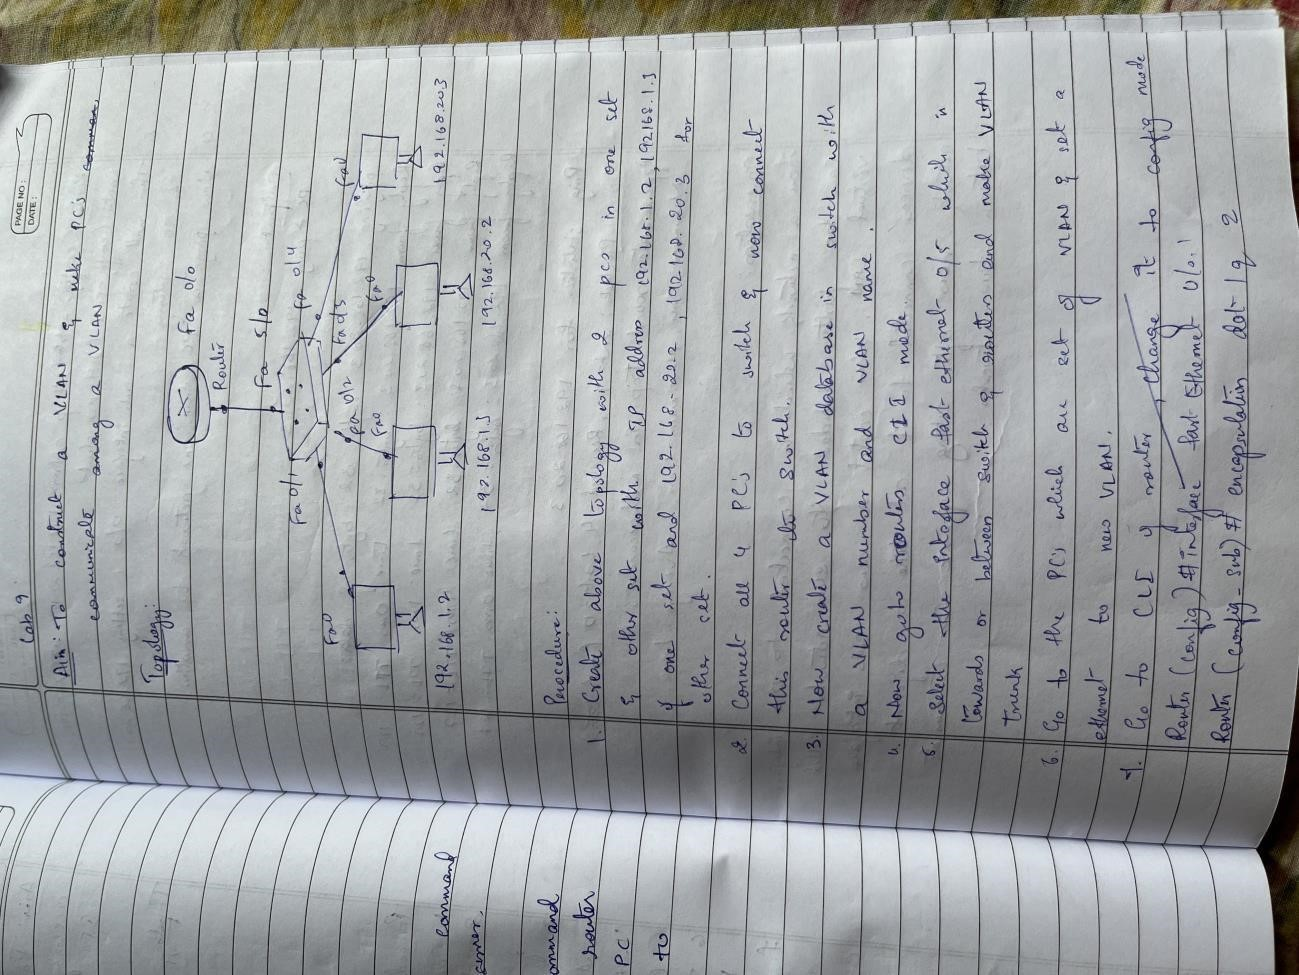 PAGE NO:
DATE:
Lab 9
Aim: To construct a VLAN & make PC's common.
communicate among a VLAN
Topology:
Fa 0/0
Router
Fa 5/0
Fa 0/1
Fa 0/4
Fa 0/2
Fa0
Fa0
Fa0
Fa0
192.168.1.2
192.168.1.3
192.168.20.2
192.168.203
Procedure:
1. Create above topology with 2 pcs in one set
& other set with IP address 192.168.1.2, 192168.1.3
of one set and 192.168.20.2, 192168.20.3 for
other set.
2. Connect all 4 PC's to switch & now connect
this router to switch.
3. Now create a VLAN database in switch with
a VLAN number and VLAN name.
4. Now goto routers CLI mode.
5. Select the interface fast ethernet 0/5 which is
towards or between switch & routers and make VLAN
trunk
6. Go to the PCs which are set of VLAN & set a
ethernet to new VLAN.
7. Go to CLI of router, change it to config mode
Router (config) # interface fast Ethernet 0/0.1
Router (config-sub) # encapsulation dot 1q 2
command
ommand
router
PC
to